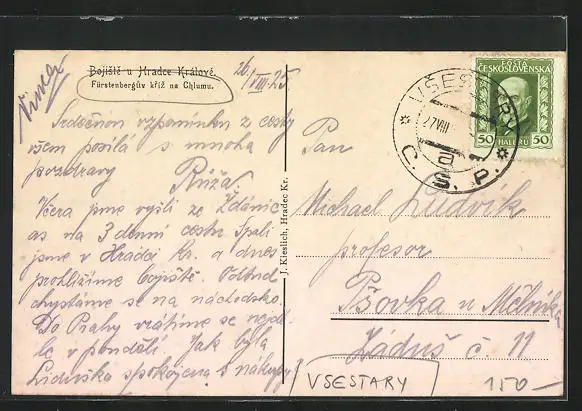 Bojiště u Hradce Králové.
Fürstenbergův kříž na Chlumu.
26/VIII 25
Srdečnou vzpomínku z cesty
všem posílá s mnoha
pozdravy
Růža.
Včera jsme vyšli ze Ždánic
as na 3 denní cestu. Spali
jsme v Hradci Kr. a dnes
prohlížíme bojiště. Odtud
chystáme se na náchodsko.
Do Prahy vrátíme se nejdé-
le v pondělí. Jak byla
Liduška spokojena s nákupy?
J. Kleslich, Hradec Kr.
POŠTA
ČESKOSLOVENSKÁ
50 HALÉŘŮ 50
VŠESTARY
27 VIII
a
* Č. S. P. *
Pan
Michael Ludvík
profesor
Pšovka u Mělníka
Záduš č. 11
VSESTARY
150-